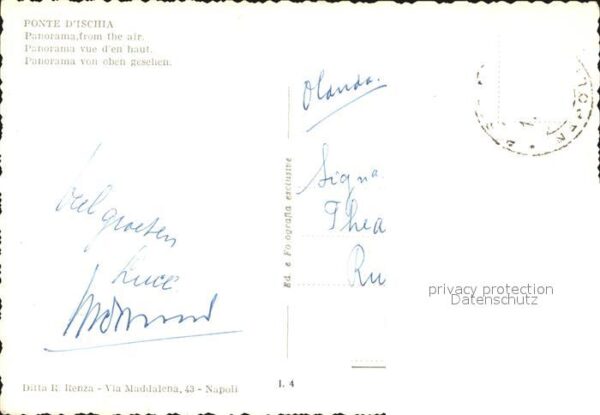 PONTE D'ISCHIA
Panorama, from the air.
Panorama vue d'en haut.
Panorama von oben gesehen.
Olanda.
Signa
Thea
Ru
Veel
groeten
Ed. e Fotografia esclusive
privacy protection
Datenschutz
Ditta R. Renza - Via Maddalena, 43 - Napoli
I. 4